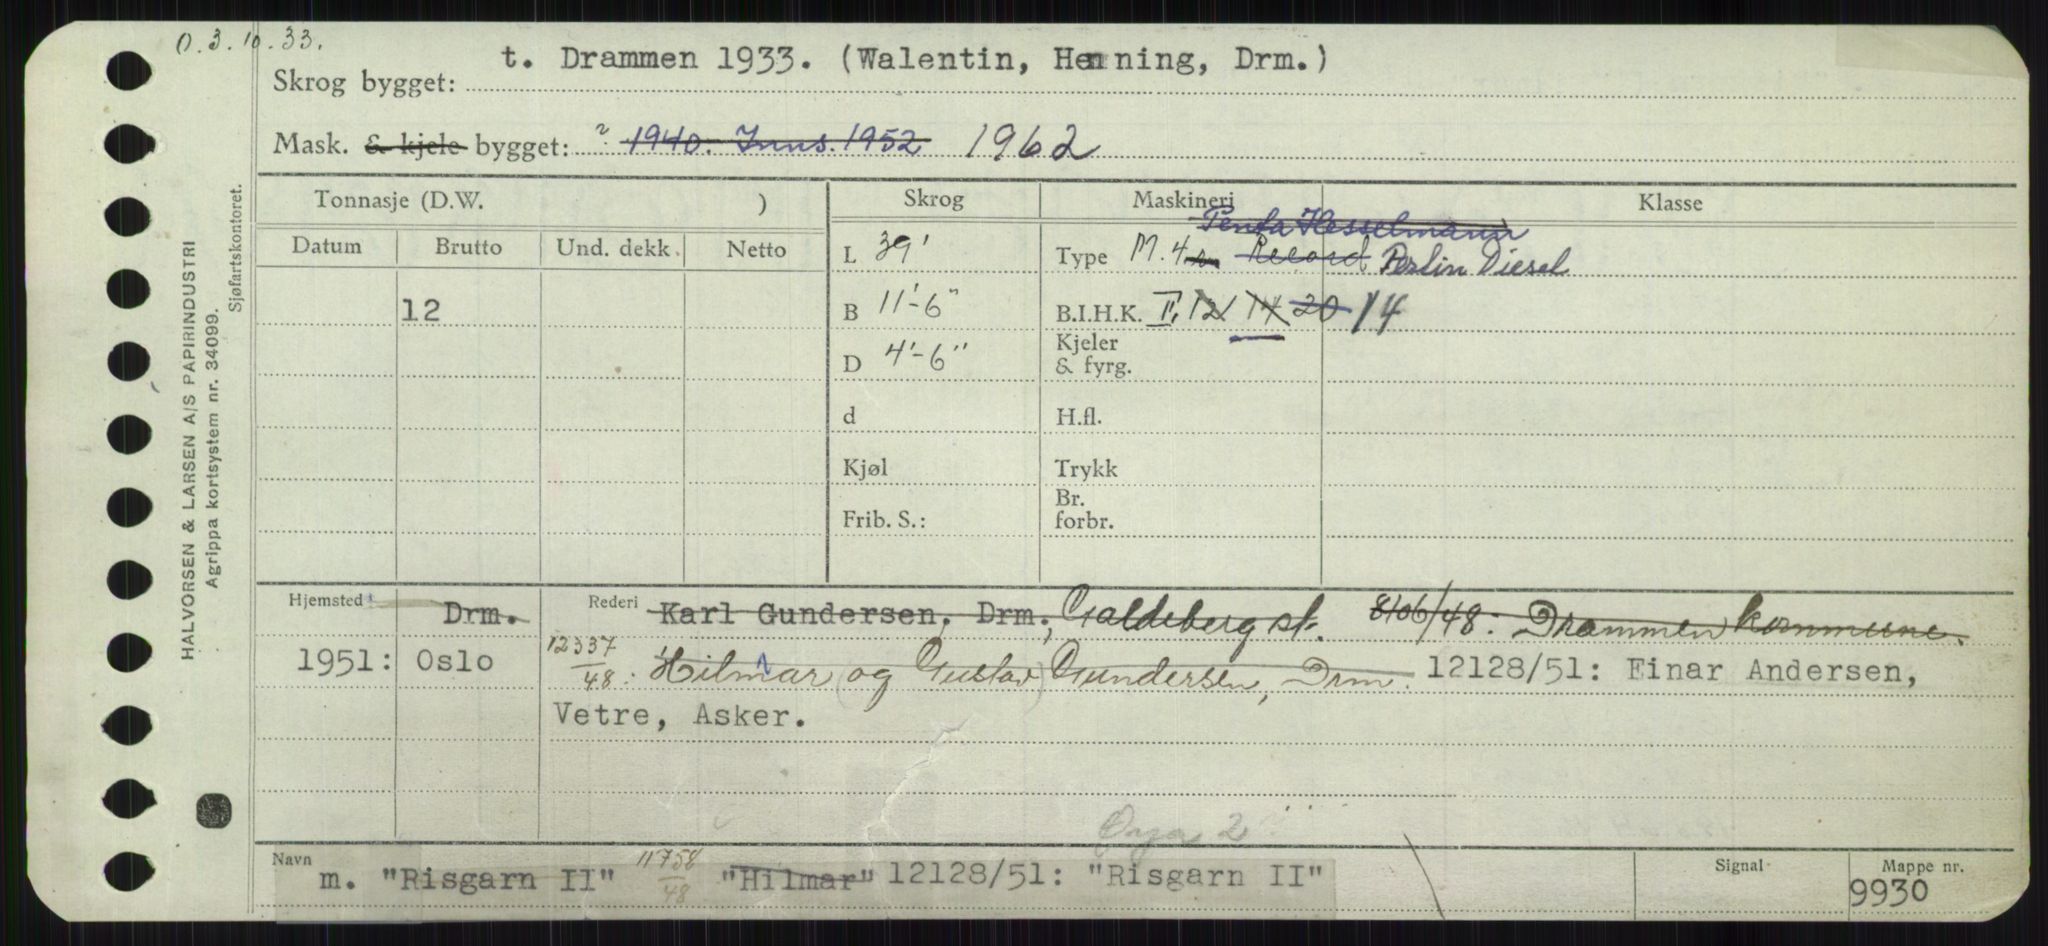 O. 3. 10. 33.
Skrog bygget: t. Drammen 1933. (Walentin, Henning, Drm.)
Mask. & kjele bygget: ~ 1940. Inns. 1952 1962
Tonnasje (D.W. ) Skrog Maskineri Klasse
Datum Brutto Und. dekk. Netto
Penta Hesselmann
L 39' Type M. 4 Record Perlin Diesel
12 B 11'-6" B.I.H.K. II, 12 14 20 14
D 4'-6" Kjeler & fyrg.
d H.fl.
Kjøl Trykk
Frib. S.: Br. forbr.
Hjemsted Drm. Rederi Karl Gundersen, Drm., Galdeberg st. 8106/48. Drammen kommune.
1951: Oslo 12337/48: Hilmar (og Gustav) Gundersen, Drm. 12128/51: Einar Andersen,
Vetre, Asker.
2
Navn m. "Risgarn II" 11758/48 "Hilmar" 12128/51: "Risgarn II" Signal Mappe nr. 9930
HALVORSEN & LARSEN A/S PAPIRINDUSTRI
Agrippa kortsystem nr. 34099.
Sjøfartskontoret.